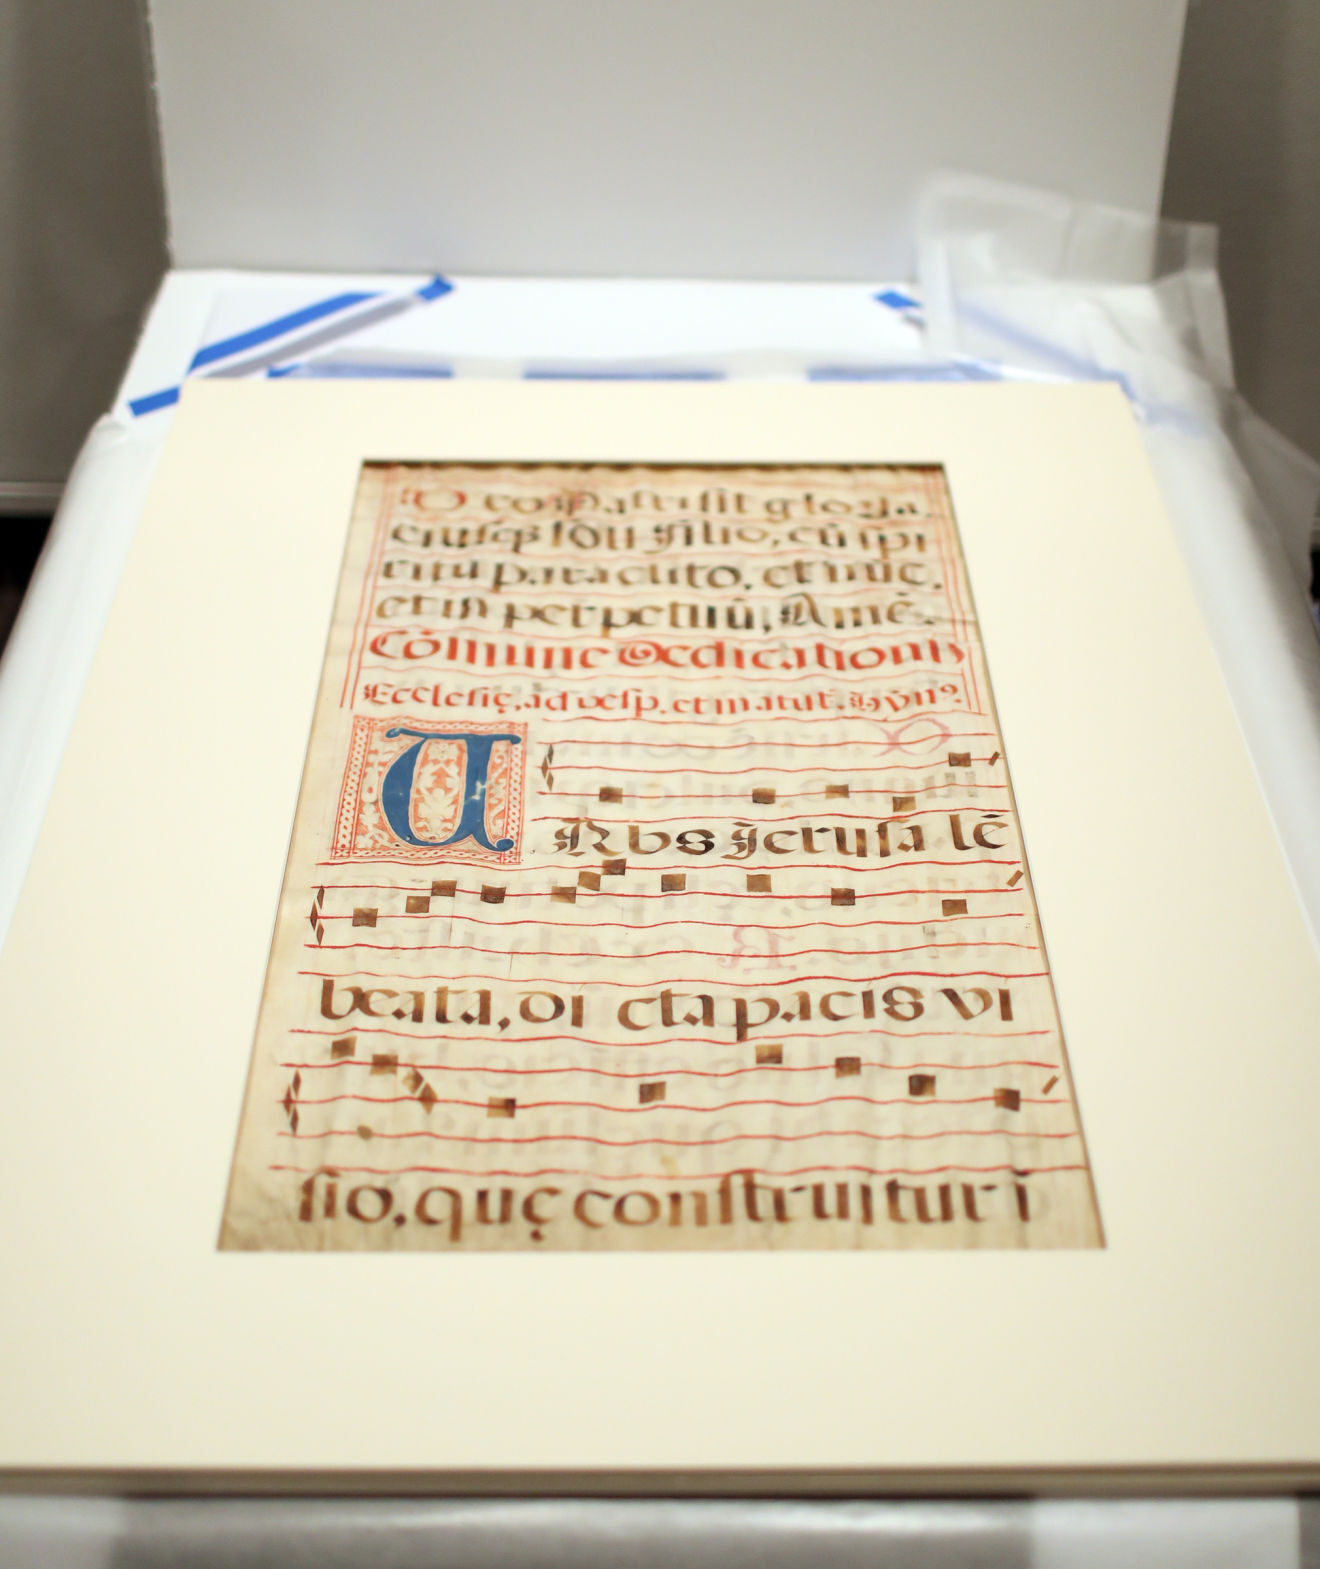 Deo Patri sit gloria,
eiusqȝ soli Filio, cū spi
ritu paraclito, et nūc,
et in perpetuū, Amē.
Cōmune Dedicationis
Ecclesię, ad vesp. et matut. Hȳn⁹.
URbs Jerusa lē
beata, di cta pacis vi
sio, quę construitur ī